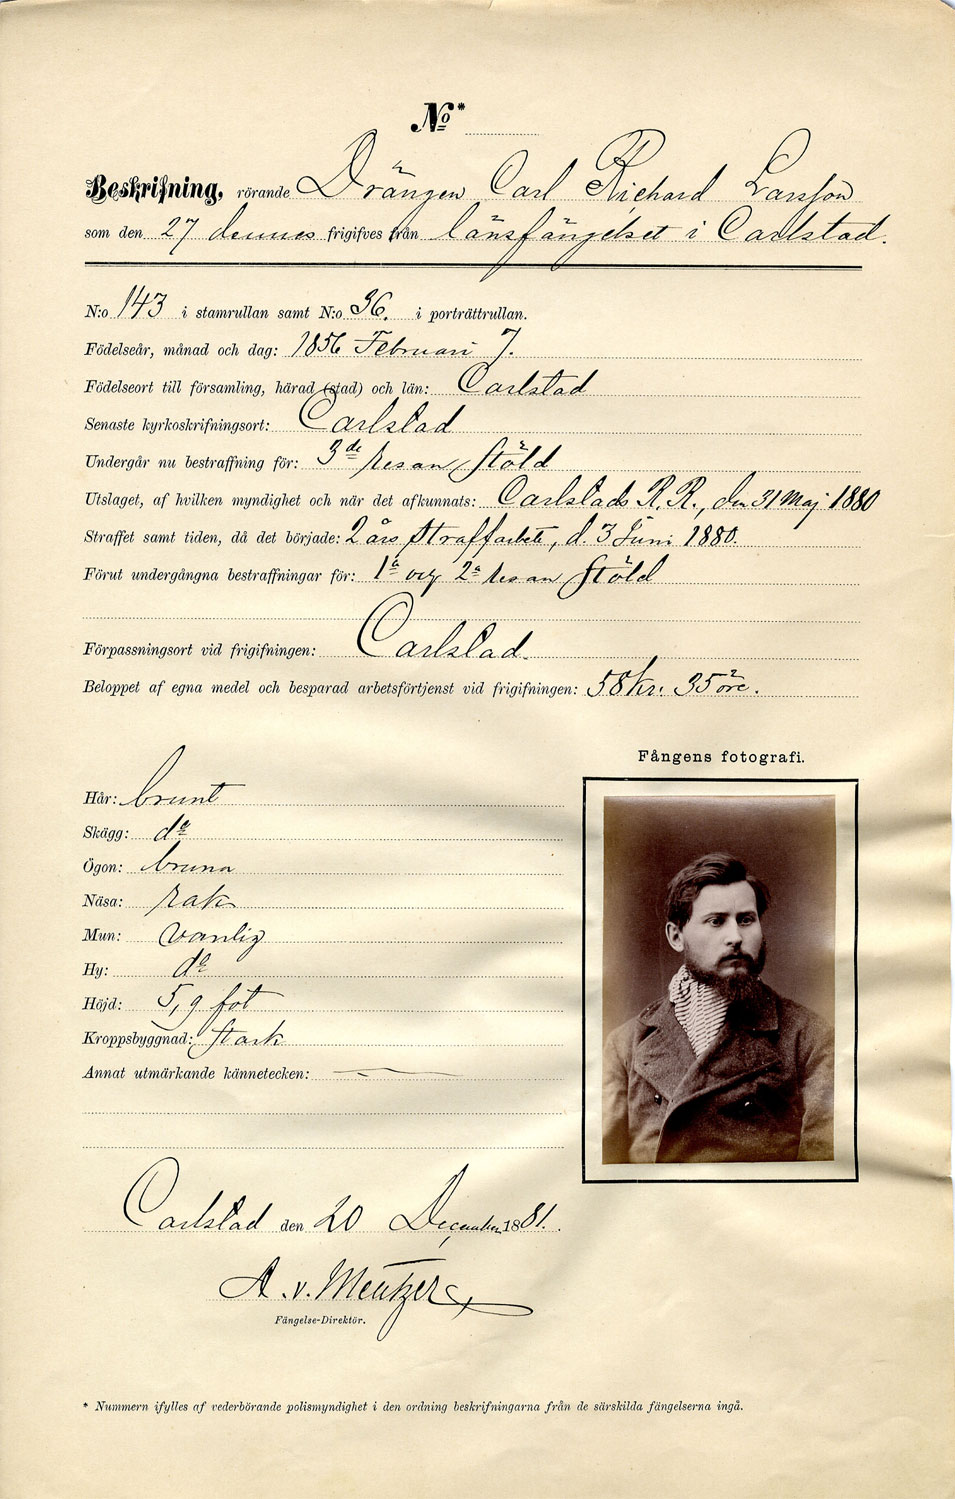 No*
Beskrifning, rörande Drängen Carl Richard Larsson
som den 27 dennes frigifves från länsfängelset i Carlstad.
N:o 143 i stamrullan samt N:o 36. i porträttrullan.
Födelseår, månad och dag: 1856 Februari 7.
Födelseort till församling, härad (stad) och län: Carlstad
Senaste kyrkoskrifningsort: Carlstad
Undergår nu bestraffning för: 3de resan stöld
Utslaget, af hvilken myndighet och när det afkunnats: Carlstads R.R., den 31 Maj 1880
Straffet samt tiden, då det började: 2 års straffarbete, d. 3 Juni 1880.
Förut undergångna bestraffningar för: 1a och 2a resan stöld
Förpassningsort vid frigifningen: Carlstad.
Beloppet af egna medel och besparad arbetsförtjenst vid frigifningen: 58 kr. 35 öre.
Fångens fotografi.
Hår: brunt
Skägg: do
Ögon: bruna
Näsa: rak
Mun: vanlig
Hy: do
Höjd: 5,9 fot
Kroppsbyggnad: stark
Annat utmärkande kännetecken: —
Carlstad den 20 December 1881.
A. v. Mentzer
Fängelse-Direktör.
* Nummern ifylles af vederbörande polismyndighet i den ordning beskrifningarna från de särskilda fängelserna ingå.